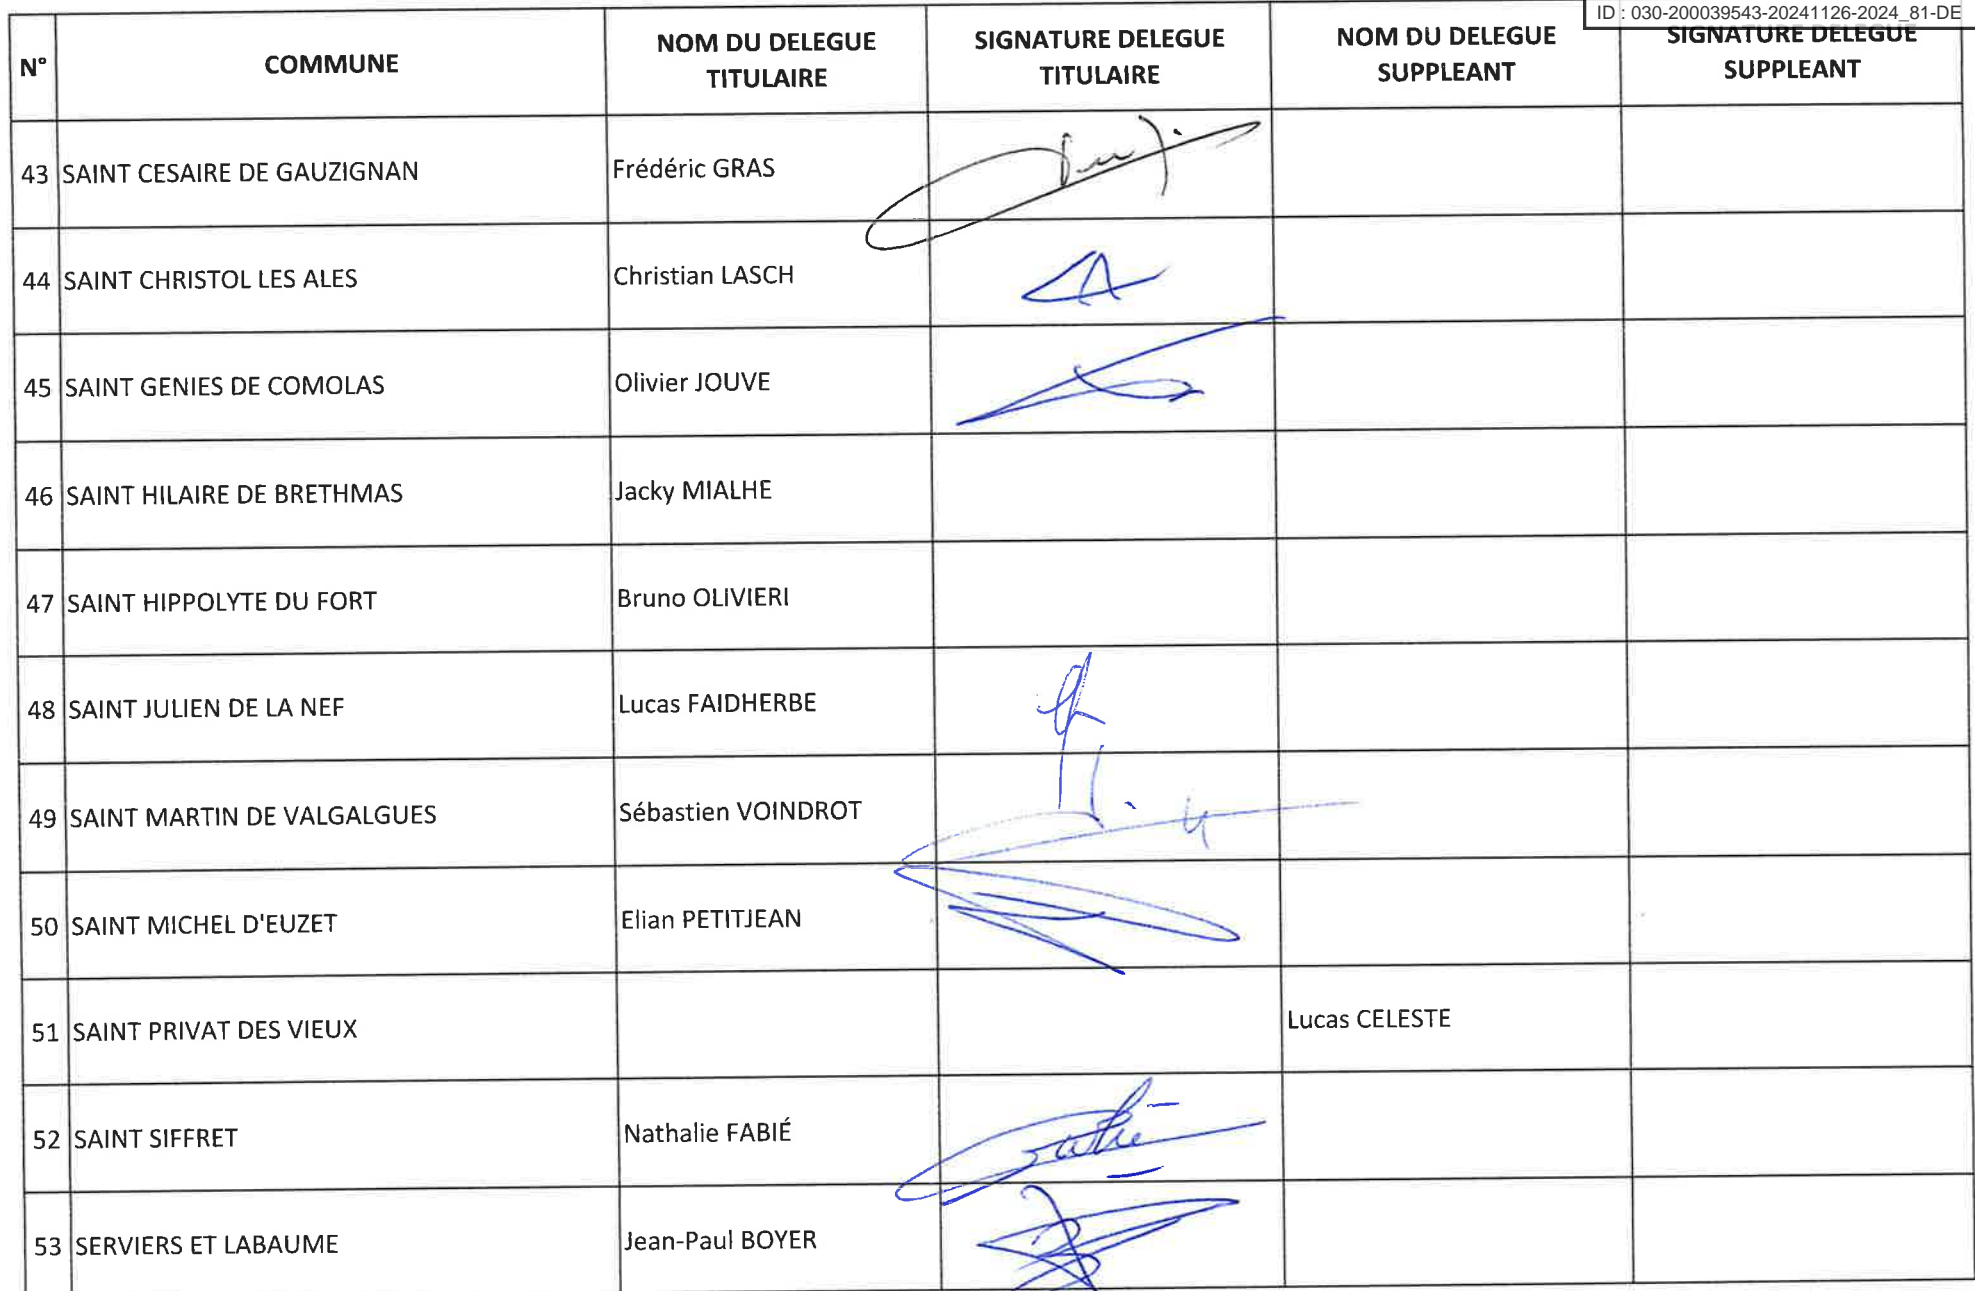 ID : 030-200039543-20241126-2024_81-DE
N° COMMUNE NOM DU DELEGUE TITULAIRE SIGNATURE DELEGUE TITULAIRE NOM DU DELEGUE SUPPLEANT SIGNATURE DELEGUE SUPPLEANT
43 SAINT CESAIRE DE GAUZIGNAN Frédéric GRAS
44 SAINT CHRISTOL LES ALES Christian LASCH
45 SAINT GENIES DE COMOLAS Olivier JOUVE
46 SAINT HILAIRE DE BRETHMAS Jacky MIALHE
47 SAINT HIPPOLYTE DU FORT Bruno OLIVIERI
48 SAINT JULIEN DE LA NEF Lucas FAIDHERBE
49 SAINT MARTIN DE VALGALGUES Sébastien VOINDROT
50 SAINT MICHEL D'EUZET Elian PETITJEAN
51 SAINT PRIVAT DES VIEUX Lucas CELESTE
52 SAINT SIFFRET Nathalie FABIÉ
53 SERVIERS ET LABAUME Jean-Paul BOYER